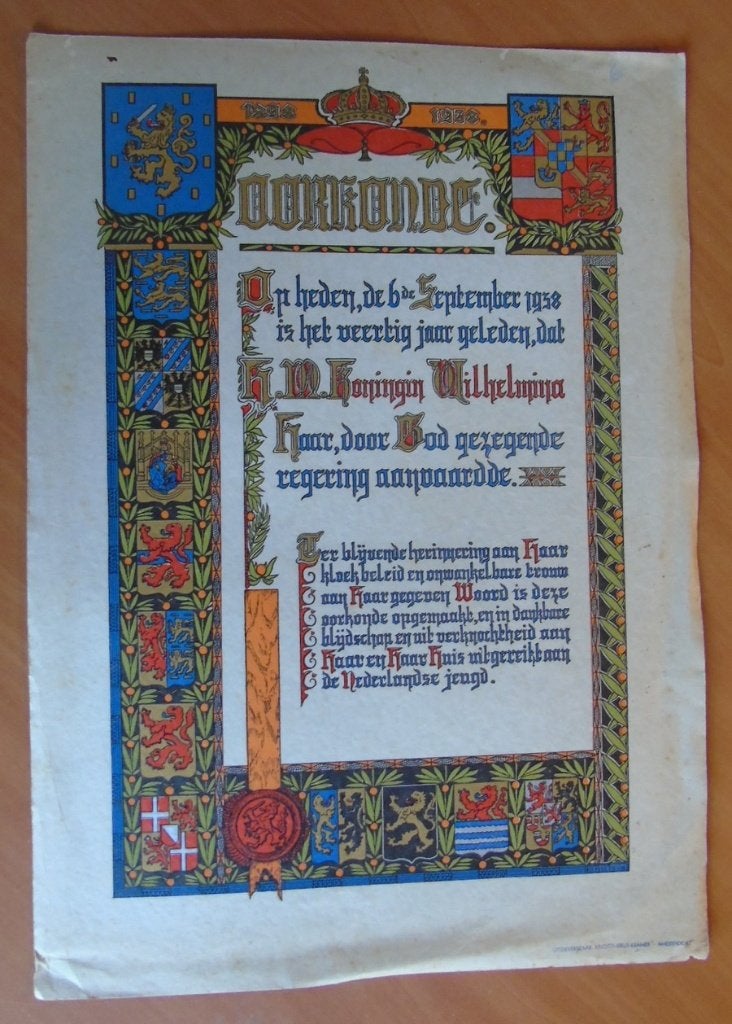 1898 1938.
OORKONDE.
Op heden, de 6de September 1938
is het veertig jaar geleden, dat
H. M. Koningin Wilhelmina
Haar, door God gezegende
regering aanvaardde.
Ter blijvende herinnering aan Haar
kloek beleid en onwankelbare trouw
aan Haar gegeven Woord is deze
oorkonde opgemaakt, en in dankbare
blijdschap en uit verknochtheid aan
Haar en Haar Huis uitgereikt aan
de Nederlandse jeugd.